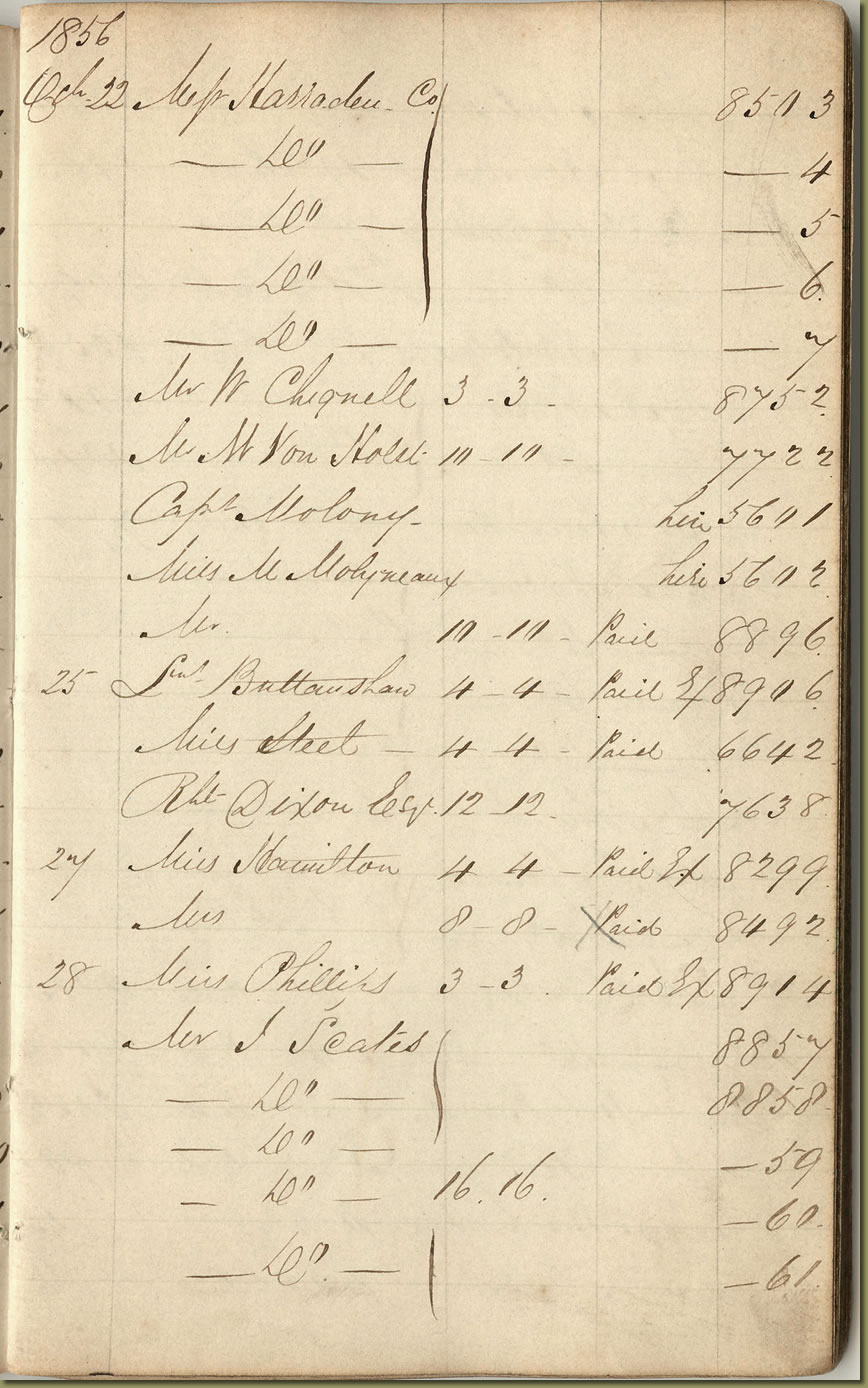 1856
Oct 22 Messrs Harraden Co 8503
— Do — — 4
— Do — — 5
— Do — — 6.
— Do — — 7
Mr W Chignell 3 - 3 - 8752
Mr M Von Holst 10 - 10 - 7722
Capt Molony - hire 5601
Miss M Molyneaux hire 5602
Mr. 10 - 10 - Paid 8896
25 Buttanshaw 4 - 4 - Paid Ex 8906
Miss Steet — 4 4 - Paid 6642
Rbt Dixon Esqr. 12 - 12. 7638
27 Miss Hamilton 4 4 - Paid Ex 8299
Mrs 8 - 8 - Paid 8492
28 Miss Phillips 3 - 3. Paid Ex 8914
Mr J Scates 8857
— Do — 8858
— Do — — 59
— Do — 16. 16. — 60.
— Do. — — 61.